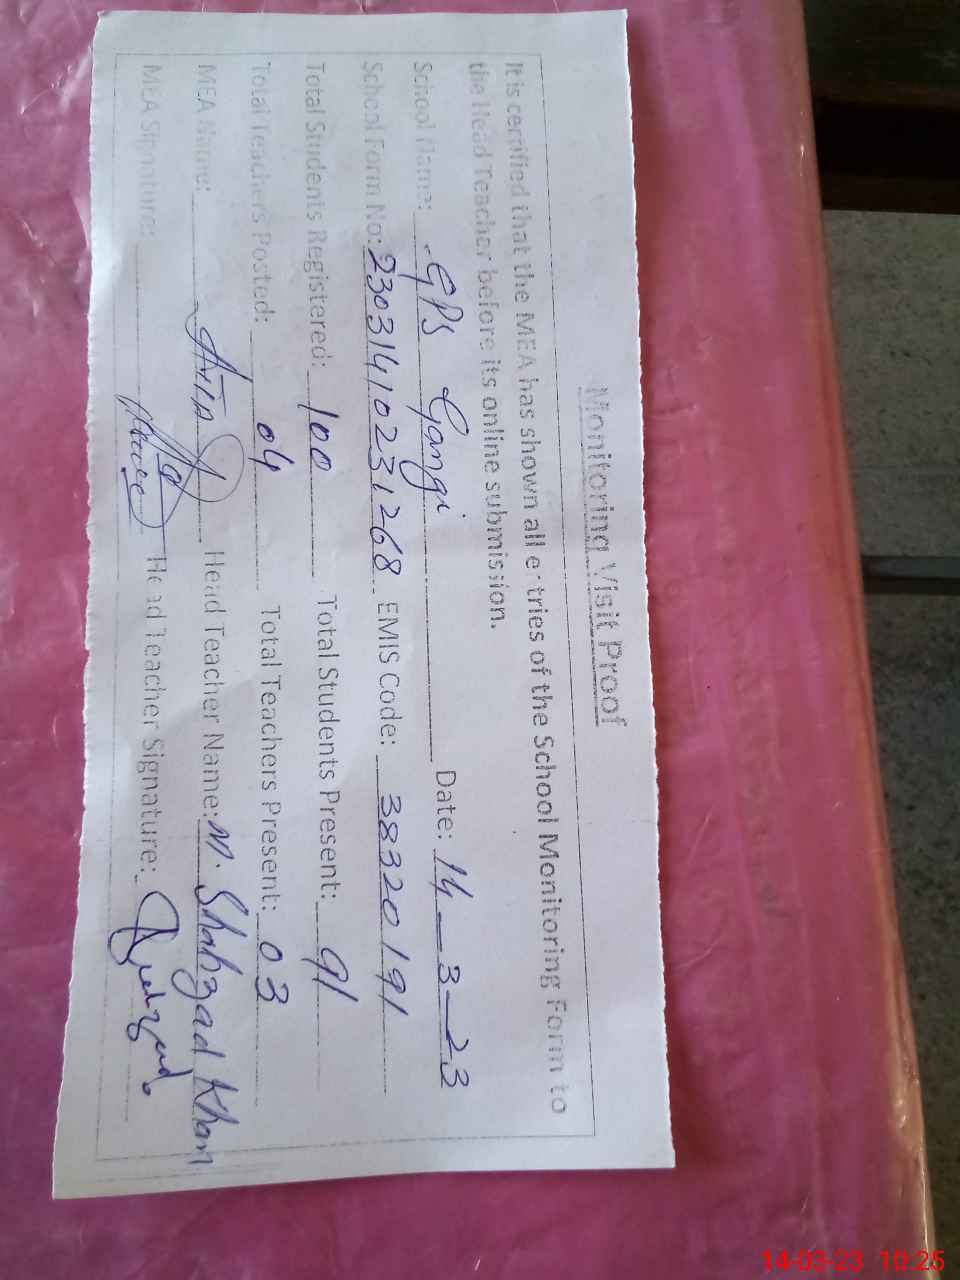 Monitoring Visit Proof
It is certified that the MEA has shown all entries of the School Monitoring Form to
the Head Teacher before its online submission.
School Name: GPS Gangi Date: 14-3-23
School Form No: 23031410231268 EMIS Code: 38320191
Total Students Registered: 100 Total Students Present: 91
Total Teachers Posted: 04 Total Teachers Present: 03
MEA Name: Head Teacher Name: M. Shahzad Khan
MEA Signature: Head Teacher Signature:
14-03-23 10:25